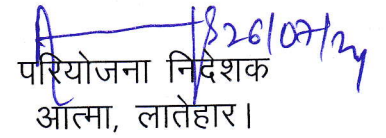 26/07/24
परियोजना निदेशक
आत्मा, लातेहार।